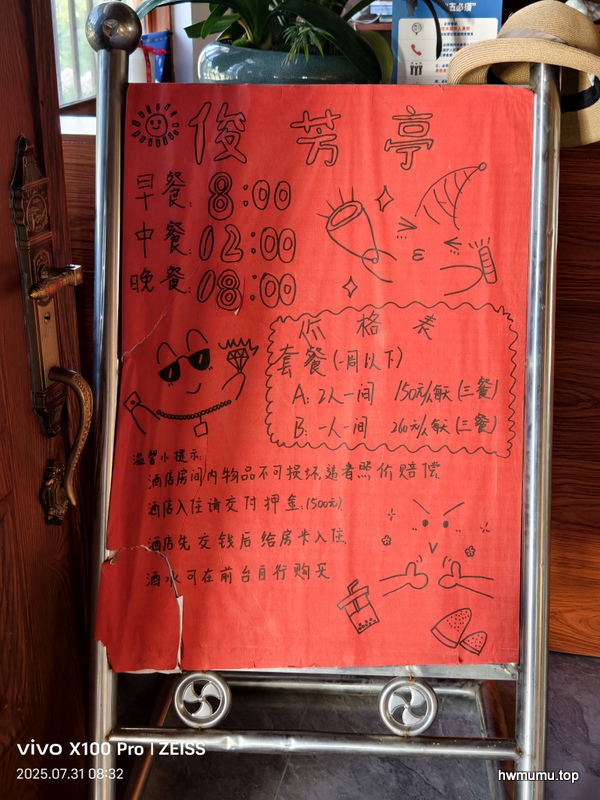 五必须"
俊芳亭
早餐: 8:00
中餐: 12:00
晚餐: 18:00
价格表
套餐(一周以下)
A: 2人一间 150元/人每天(三餐)
B: 一人一间 260元/人每天(三餐)
温馨小提示:
酒店房间内物品不可损坏,违者照价赔偿
酒店入住请交付押金(500元)
酒店先交钱后给房卡入住
酒水可在前台自行购买
vivo X100 Pro | ZEISS
2025.07.31 08:32
hwmumu.top